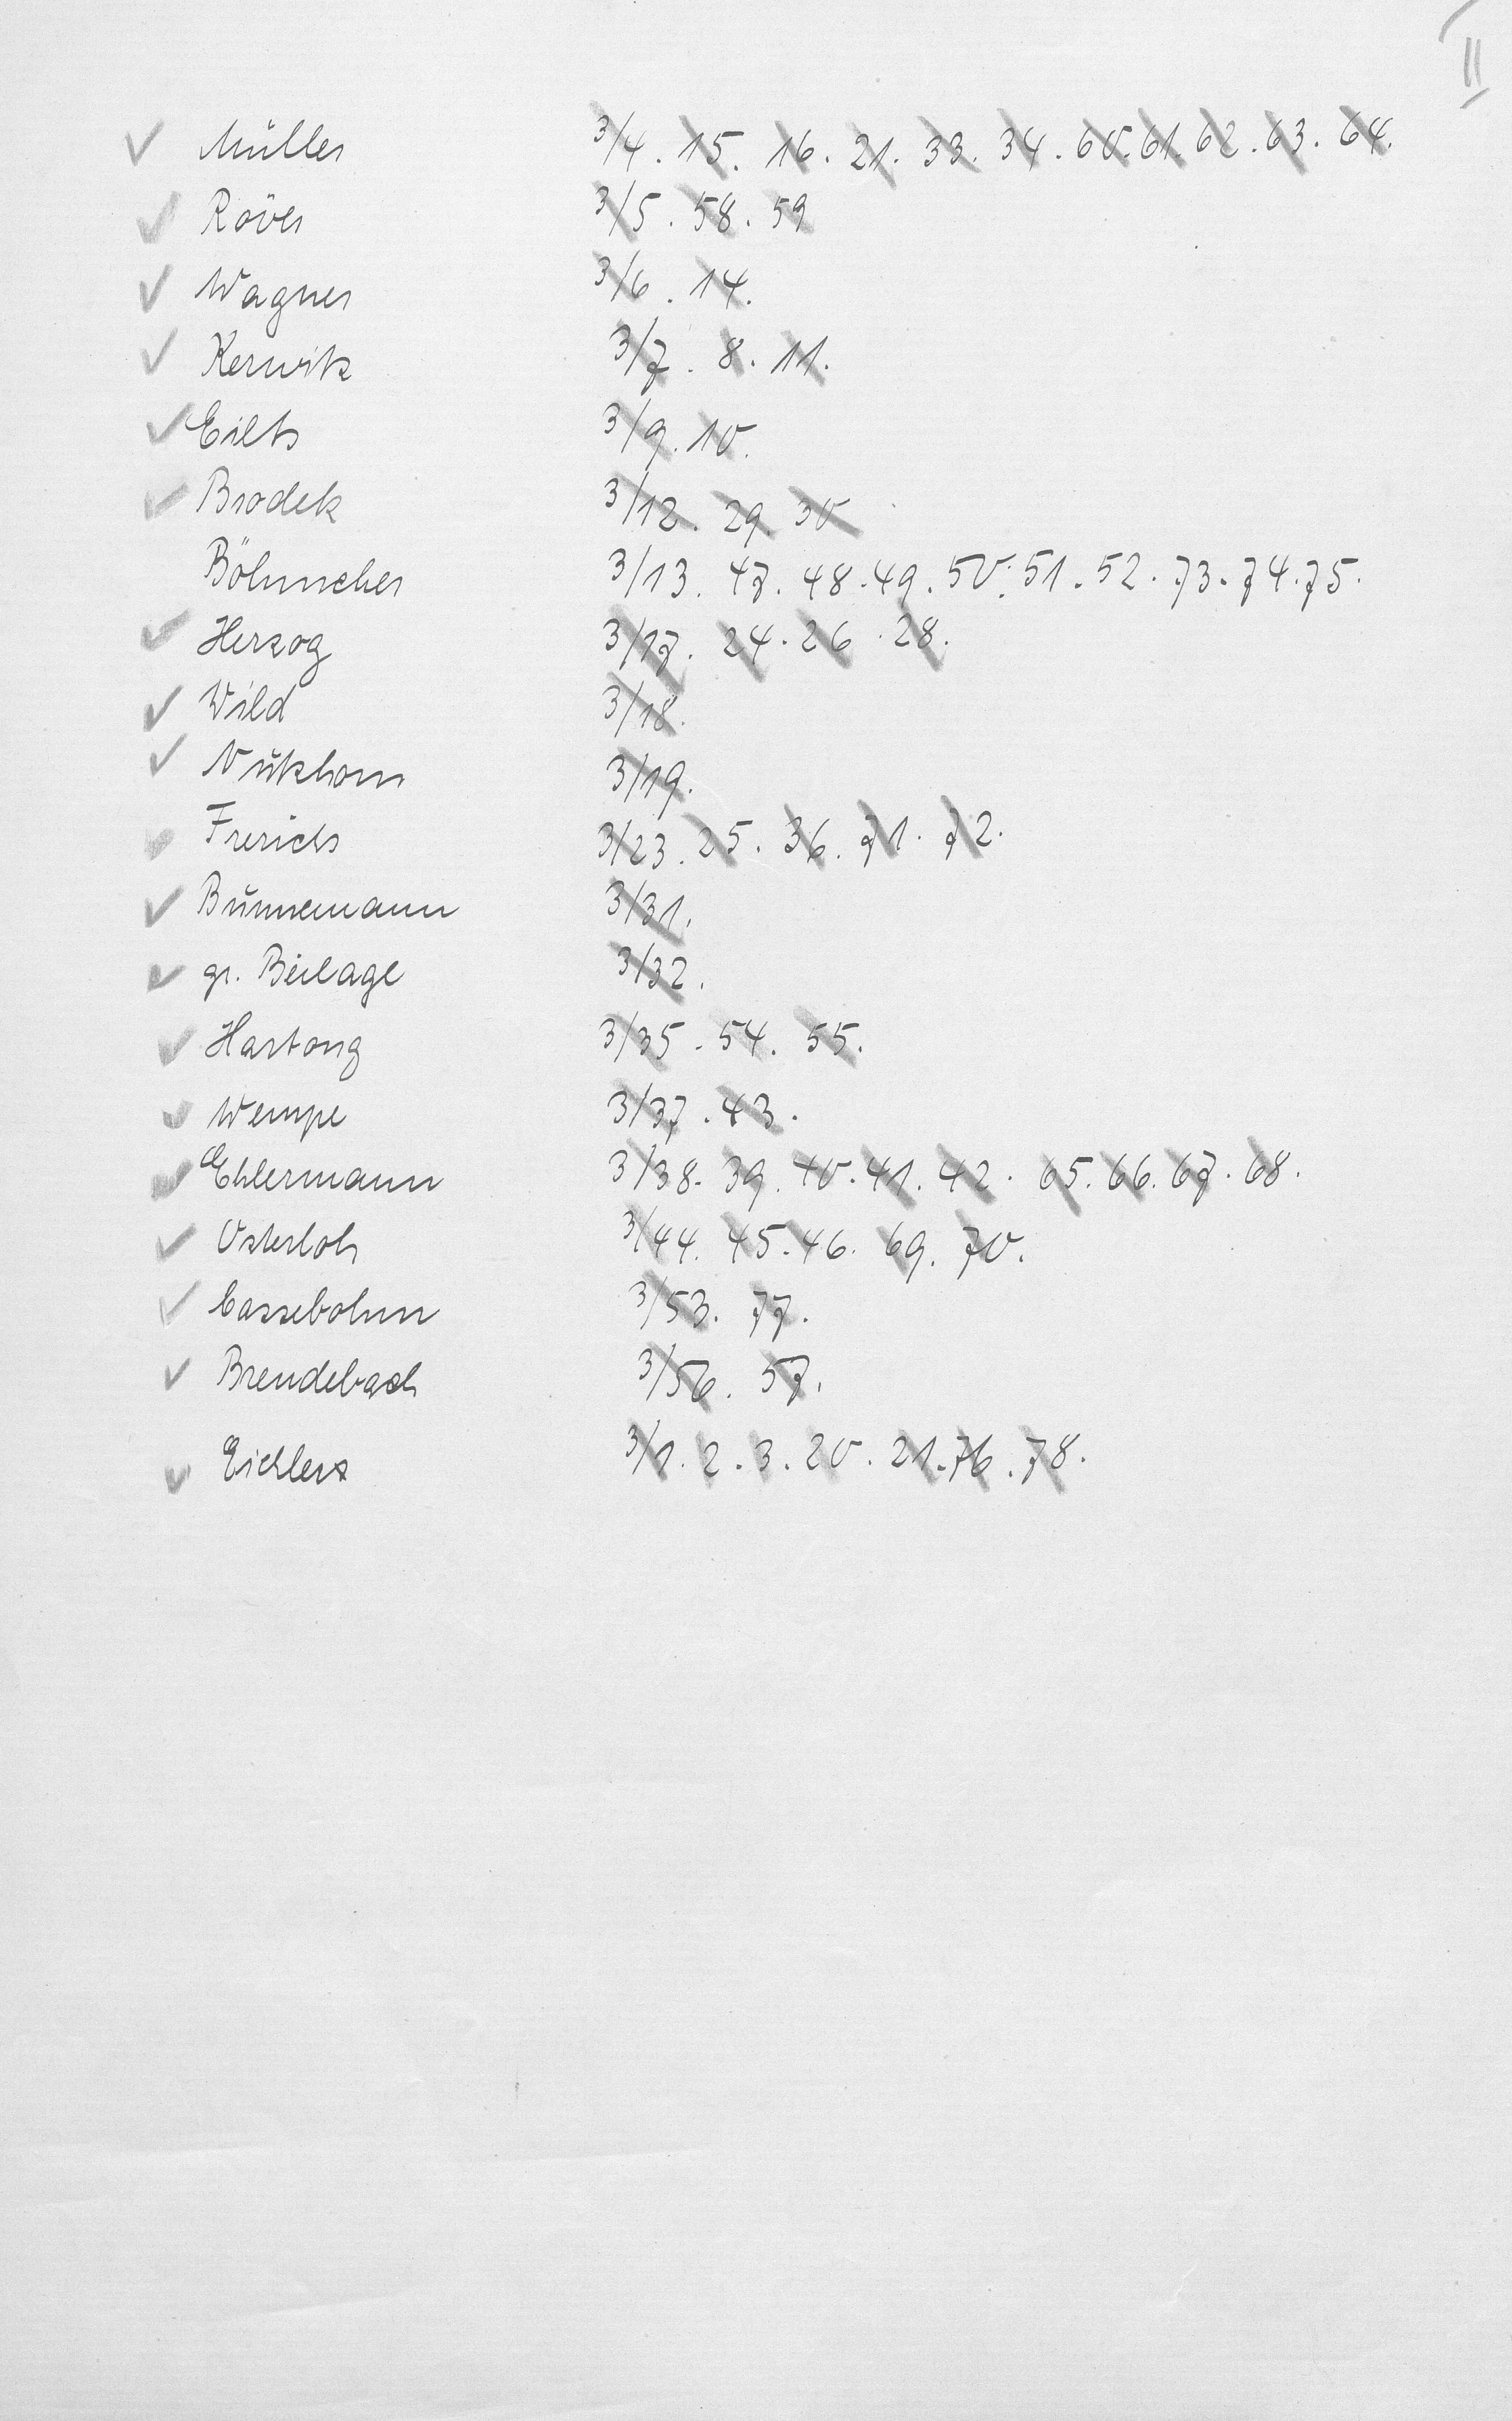 II
Müller 3/4. 15. 16. 21. 33. 34. 60. 61. 62. 63. 64.
Röver 3/5. 58. 59
Wagner 3/6. 14.
Kerwitz 3/7. 8. 11.
Eilts 3/9. 10.
Brodek 3/12. 29. 30
Böhmcher 3/13. 47. 48. 49. 50. 51. 52. 73. 74. 75.
Herzog 3/17. 24. 26. 28.
Wild 3/18.
Nutzhorn 3/19.
Frerichs 3/23. 25. 36. 71. 72.
Bünnemann 3/31.
gr. Beilage 3/32.
Hartong 3/35. 54. 55.
Wempe 3/37. 43.
Ehlermann 3/38. 39. 40. 41. 42. 65. 66. 67. 68.
Osterloh 3/44. 45. 46. 69. 70.
Cassebohm 3/53. 77.
Brendebach 3/56. 57.
Eichlerz 3/1. 2. 3. 20. 21. 76. 78.